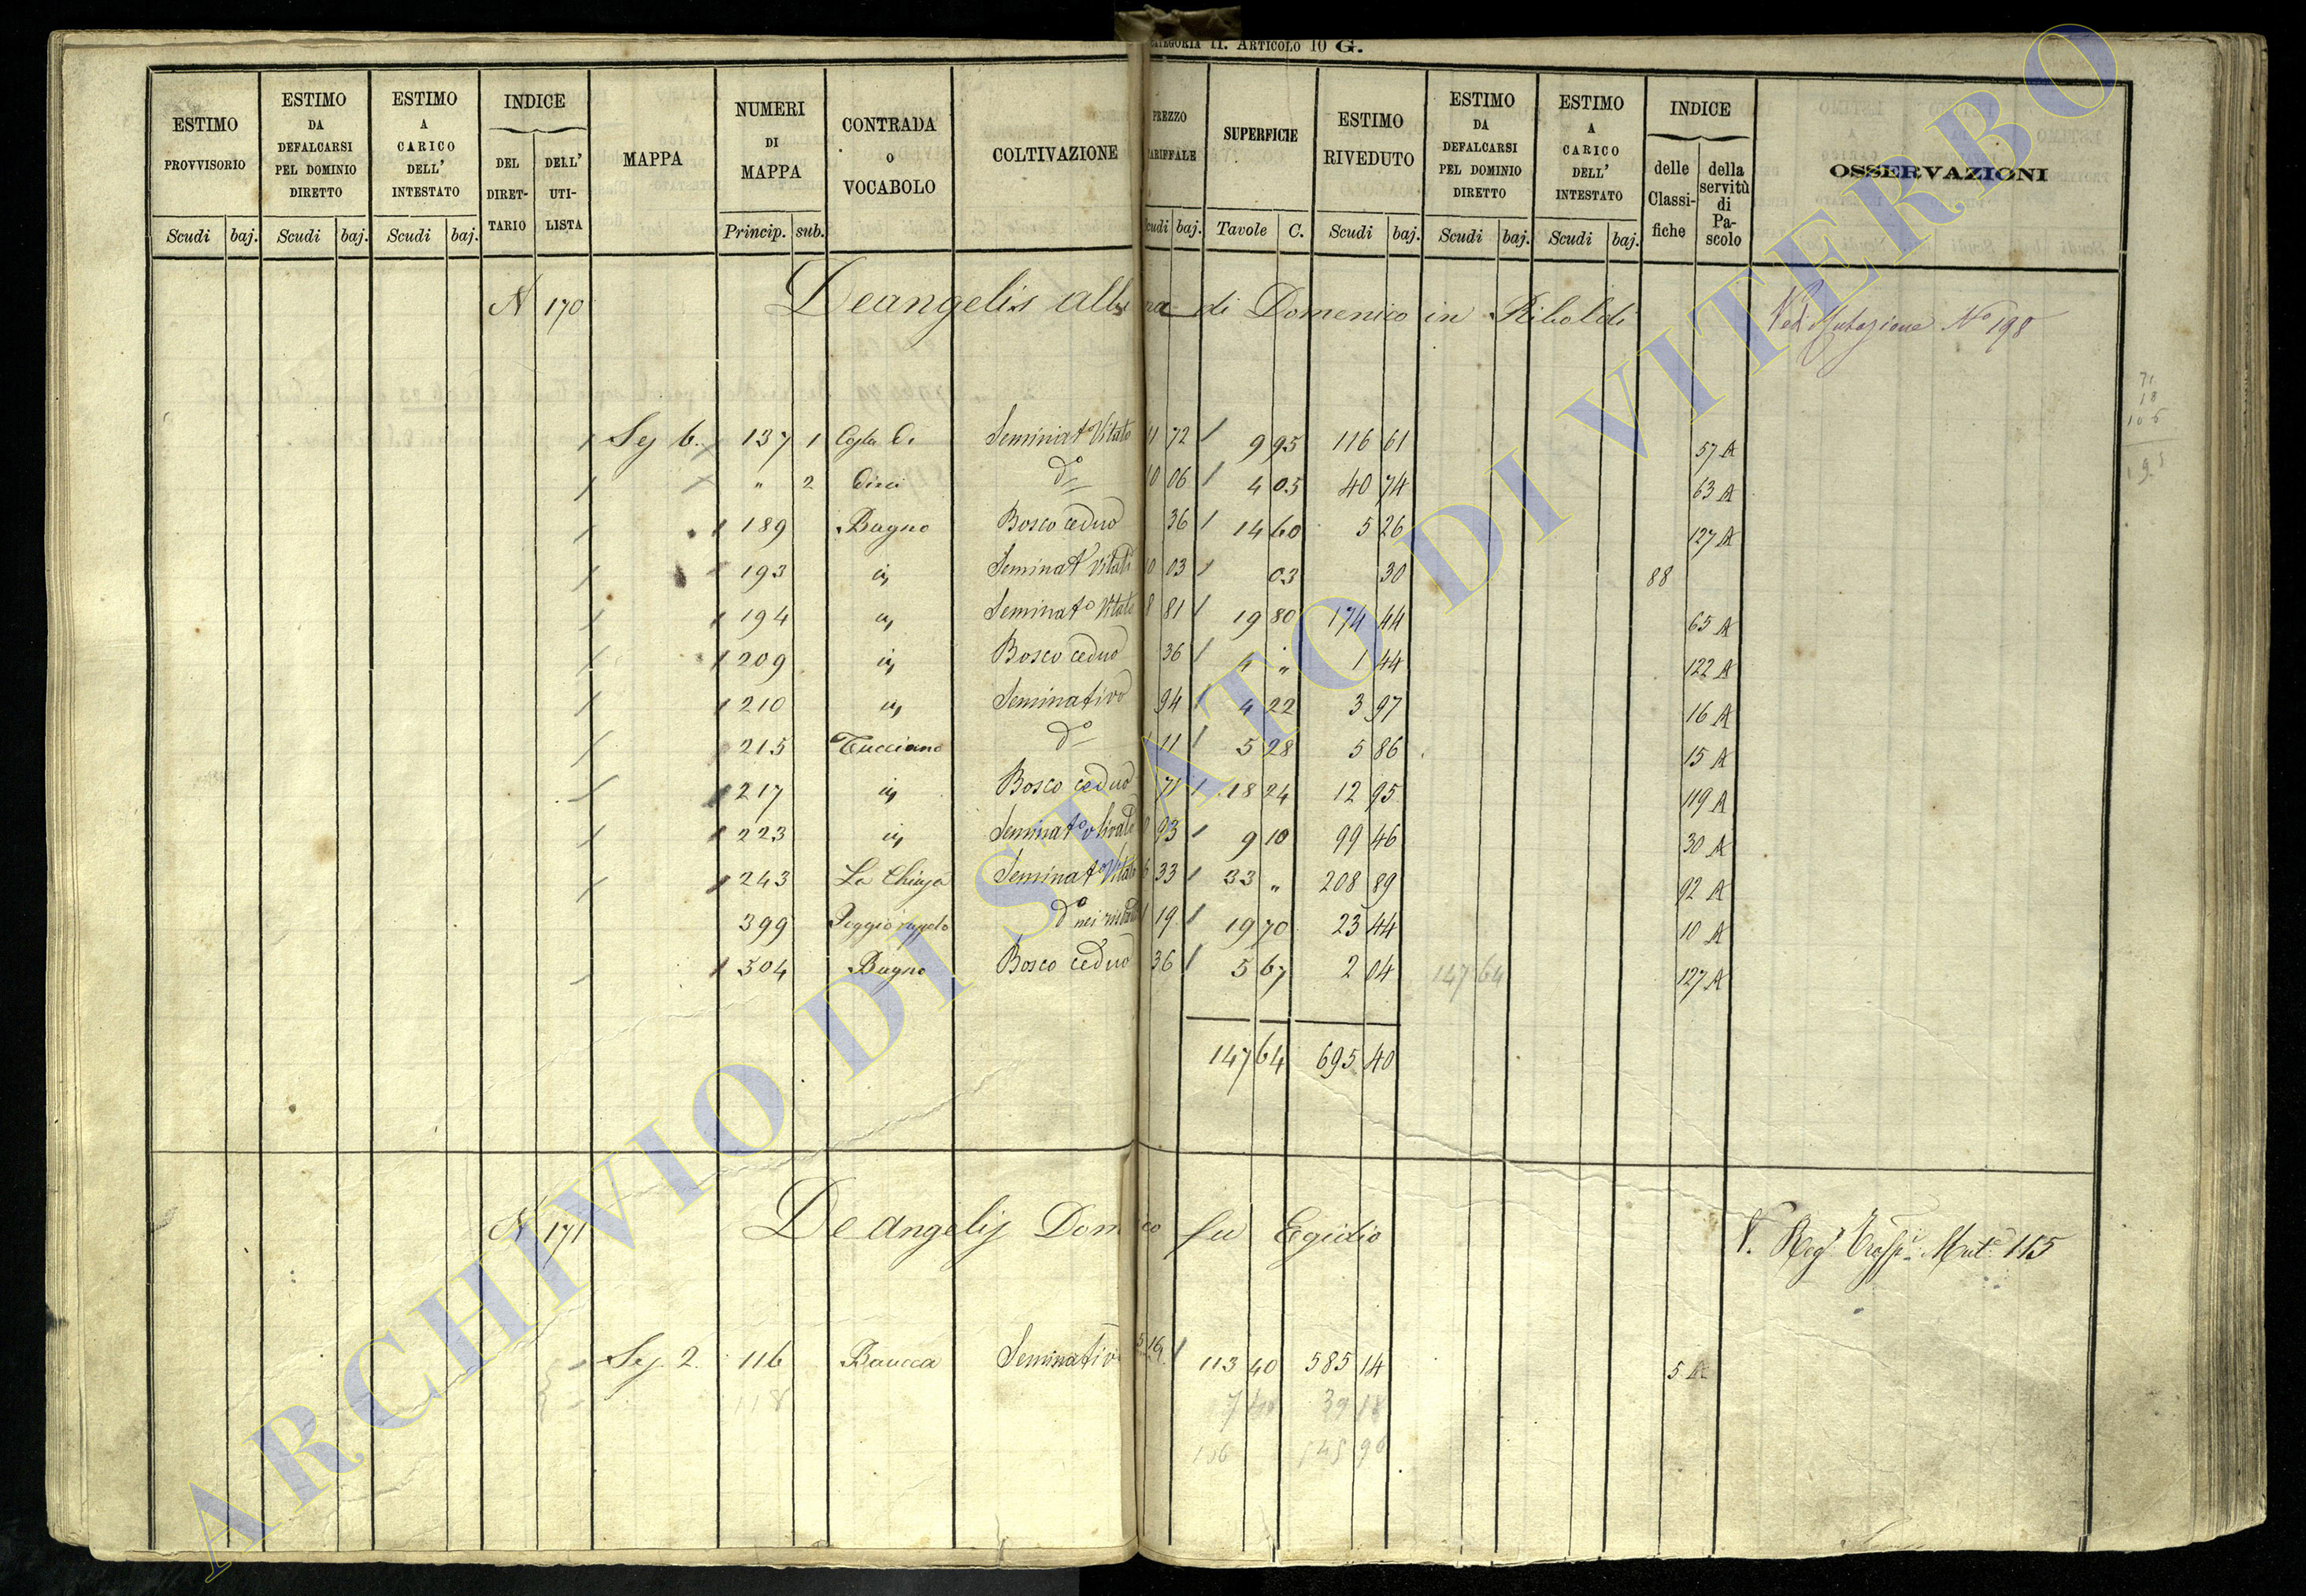 CATEGORIA II. ARTICOLO 10 G.
ESTIMO PROVVISORIO | ESTIMO DA DEFALCARSI PEL DOMINIO DIRETTO | ESTIMO A CARICO DELL' INTESTATO | INDICE DEL DIRET-TARIO | DELL' UTI-LISTA | MAPPA | NUMERI DI MAPPA | CONTRADA O VOCABOLO | COLTIVAZIONE | PREZZO TARIFFALE | SUPERFICIE | ESTIMO RIVEDUTO | ESTIMO DA DEFALCARSI PEL DOMINIO DIRETTO | ESTIMO A CARICO DELL' INTESTATO | INDICE delle Classi-fiche | della servitù di Pa-scolo | OSSERVAZIONI
Scudi baj. Scudi baj. Scudi baj. Princip. sub. Scudi baj. Tavole C. Scudi baj. Scudi baj. Scudi baj.
N 170 Deangelis Albina di Domenico in Riboldi Ved Mutazione N° 198
Sez 6. 137 1 Costa di Seminat° Vitato 11 72 9 95 116 61 57 A
" 2 Dieci d° 10 06 4 05 40 74 63 A
189 Bugno Bosco ceduo 36 14 60 5 26 127 A
193 id Seminat° Vitato 10 03 03 30 88
194 id Seminat° Vitato 8 81 19 80 174 44 65 A
209 id Bosco ceduo 36 4 " 1 44 122 A
210 id Seminativo 94 4 22 3 97 16 A
215 Tucciano d° 1 11 5 28 5 86 15 A
217 id Bosco ceduo 71 18 24 12 95 119 A
223 id Seminat° olivato 10 93 9 10 99 46 30 A
243 La Chiusa Seminat° Vitato 6 33 33 " 208 89 92 A
399 d° 1 19 19 70 23 44 10 A
504 Bugno Bosco ceduo 36 5 67 2 04 147 64 127 A
147 64 695 40
N 171 Deangelis Domco fu Egidio V. Reg° Trasp. Mut° 115
Sez. 2. 116 Baucca Seminativo 5 16 113 40 585 14 5 A
118 7 40 39 18
106 545 96
ARCHIVIO DI STATO DI VITERBO